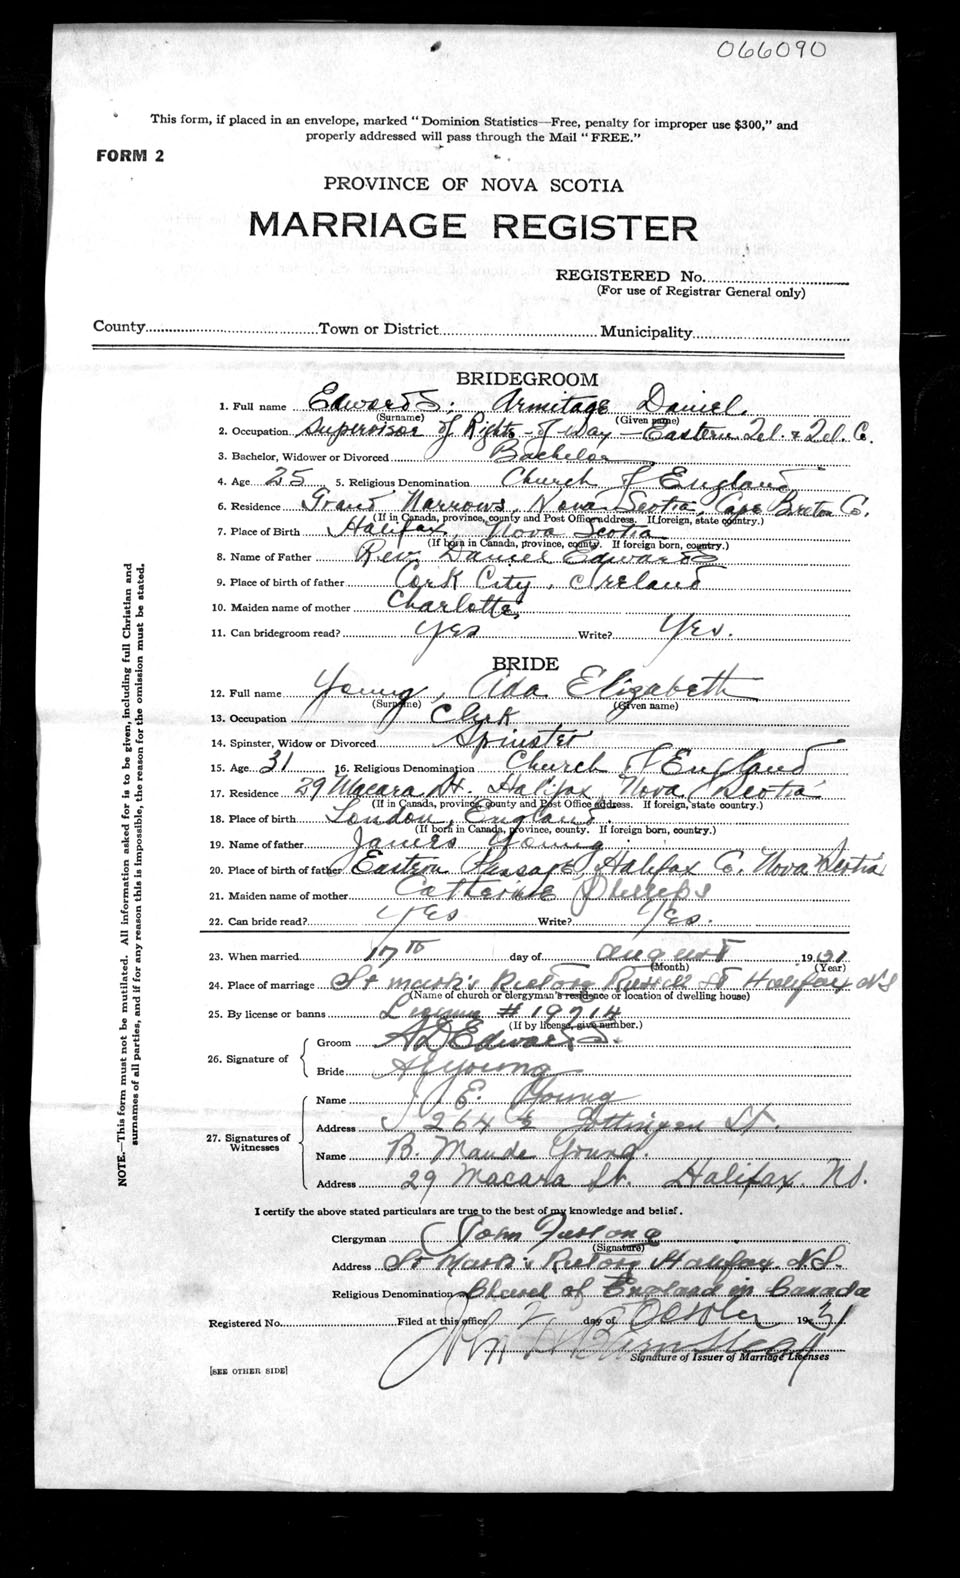 066090
This form, if placed in an envelope, marked "Dominion Statistics—Free, penalty for improper use $300," and
properly addressed will pass through the Mail "FREE."
FORM 2
PROVINCE OF NOVA SCOTIA
MARRIAGE REGISTER
REGISTERED No.
(For use of Registrar General only)
County Town or District Municipality
BRIDEGROOM
1. Full name Edwards. Armitage Daniel
(Surname) (Given name)
2. Occupation Supervisor of Rights-of-Way - Eastern Tel. & Tel. Co.
3. Bachelor, Widower or Divorced Bachelor
4. Age 25 5. Religious Denomination Church of England
6. Residence Grand Narrows, Nova Scotia, Cape Breton Co.
(If in Canada, province, county and Post Office address. If foreign, state country.)
7. Place of Birth Halifax, Nova Scotia
(If born in Canada, province, county. If foreign born, country.)
8. Name of Father Rev. Daniel Edwards
9. Place of birth of father Cork City, Ireland
10. Maiden name of mother Charlotte
11. Can bridegroom read? Yes Write? Yes.
BRIDE
12. Full name Young, Ada Elizabeth
(Surname) (Given name)
13. Occupation Clerk
14. Spinster, Widow or Divorced Spinster
15. Age 31 16. Religious Denomination Church of England
17. Residence 29 Macara St. Halifax, Nova Scotia
(If in Canada, province, county and Post Office address. If foreign, state country.)
18. Place of birth London, England.
(If born in Canada, province, county. If foreign born, country.)
19. Name of father James Young
20. Place of birth of father Eastern Passage, Halifax Co. Nova Scotia
21. Maiden name of mother Catherine Phillips
22. Can bride read? Yes Write? Yes.
23. When married 17th day of August 1931
(Month) (Year)
24. Place of marriage St Mark's Rectory Russell St Halifax NS
(Name of church or clergyman's residence or location of dwelling house)
25. By license or banns License # 19714
(If by license, give number.)
26. Signature of
Groom A D Edwards.
Bride A E Young
27. Signatures of Witnesses
Name J E. Young
Address 264 ½ Gottingen St.
Name B. Maude Young.
Address 29 Macara St. Halifax. N.S.
I certify the above stated particulars are true to the best of my knowledge and belief.
Clergyman John Furlong
(Signature)
Address St Mark's Rectory Halifax. N.S.
Religious Denomination Church of England in Canada
Registered No. Filed at this office day of October 1931
Signature of Issuer of Marriage Licenses
[SEE OTHER SIDE]
NOTE.—This form must not be mutilated. All information asked for is to be given, including full Christian and
surnames of all parties, and if for any reason this is impossible, the reason for the omission must be stated.